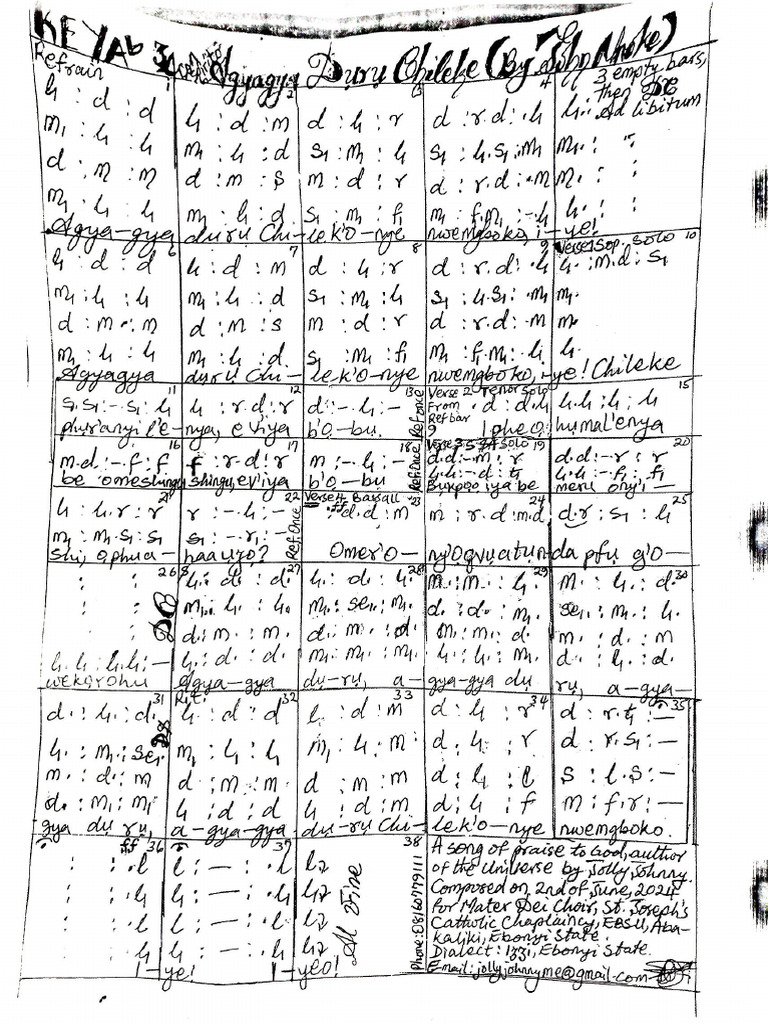 KEY Ab 3 Agyagya Duru Chileke (By John Nnoke)
Refrain
3 empty bars,
then DC
Ad libitum
1 2 3 4
l₁ : d : d | l₁ : d : m | d : l₁ : r | d : r.d : .l₁ | l₁.
m₁ : l₁ : l₁ | m₁ : l₁ : d | s₁ : m₁ : l₁ | s₁ : l₁.s₁ : .m₁ | m₁. : :
d : m : m | d : m : s | m : d : r | d : r.d : .m | m. : :
m₁ : l₁ : l₁ | m₁ : l₁ : d | s₁ : m₁ : f₁ | m₁ : f₁.m₁ : .l₁ | l₁. : :
Agya-gya duru Chi-le k'o-nye nwemgboko, i-ye!
6 7 8 9 Verse 1 Sop. Solo 10
l₁ : d : d | l₁ : d : m | d : l₁ : r | d : r.d : .l₁ | l₁. : m.d : s₁
m₁ : l₁ : l₁ | m₁ : l₁ : d | s₁ : m₁ : l₁ | s₁ : l₁.s₁ : .m₁ | m₁.
d : m : m | d : m : s | m : d : r | d : r.d : .m | m.
m₁ : l₁ : l₁ | m₁ : l₁ : d | s₁ : m₁ : f₁ | m₁ : f₁.m₁ : .l₁ | l₁.
Agyagya duru Chi-le k'o-nye nwemgboko, i-ye! Chileke
11 12 13 Ref Once Verse 2 Tenor Solo From Ref bar 9 15
s₁.s₁ : - .s₁ : l₁ | l₁ : r.d : r | d : - .l₁ : - | . d : d.l₁ | l₁.l₁ : l₁ : l₁
phuranyi l'e-nya, eviya b'o-bu. Ipheo humal'enya
16 17 18 Ref Once Verse 3 S & A Solo 19 20
m.d : - .f : f | f : r.d : r | m : - .l₁ : - | d.d : - .m : r | d.d : - .r : r
l₁.l₁ : - .d : t₁ | l₁.l₁ : - .f₁ : f₁
be omeshingu shingu, eviya b'o-bu iya be meru onyi-
21 22 Ref. Once Verse 4 Bass all 24 25
l₁ : l₁ : r.r | r : - .l₁ : - | ff d.d : m | m : r.d : m.d | d.r : s₁ : l₁
m₁ : m₁ : s₁.s₁ | s₁ : - .r₁ : -
shi, ophua-haa uzo? Omer'o-ny'ogvuatun-da pfu g'o-
26 DC 27 28 29 30
: : | l₁. : d. : d. | l₁. : d. : l₁. | m. : m. : l₁. | m. : l₁. : d.
: : | m₁. : l₁. : l₁. | m₁. : se₁. : m₁. | d. : d. : m₁. | se₁. : m₁. : l₁.
: : | d. : m. : m. | d. : m. : d. | m. : m. : d | m. : d. : m
l₁.l₁ : l₁.l₁ : - | l₁. : d. : d. | m₁. : m₁. : m₁. | l₁. : l₁. : m₁. | d. : l₁. : d.
wekerohu Agya-gya du-ru, a-gya-gya du ru, a-gya-
31 DS Rit. 32 33 34 35
d. : l₁. : d. | l₁ : d : d | l₁ : d : m | d : l₁ : r | d : r.t₁ : -
l₁. : m₁. : se₁. | m₁ : l₁ : l₁ | m₁ : l₁ : m | d : l₁ : r | d : r.s₁ : -
m. : d. : m | d : m : m | d : m : m | d : l₁ : l | s : l.s : -
d. : m₁ : m₁ | l₁ : d : d | l₁ : d : m | d : l₁ : f | m : f.r : -
gya du ru, a-gya-gya du-ru Chi-lek'o-nye nwemgboko.
ff 36 37 38
: : .l | l : - : .l | l₂
: : .l₁ | l₁ : - : .l₁ | l₂
: : l | l : - : .l | l₂
: : .l₁ | l₁ : - : .l₁ | l₂
I-ye! I-yeo!
Al Fine
Phone: 08160779111
A song of praise to God, author
of the Universe by Jolly Johnny.
Composed on 2nd of June, 2024
for Mater Dei Choir, St. Joseph's
Catholic Chaplaincy, EBSU, Aba-
kaliki, Ebonyi State.
Dialect: Izzi, Ebonyi State.
E-mail: jollyjohnnyme@gmail.com